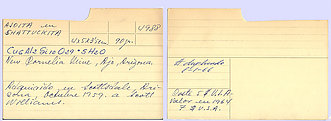 AJOITA en
SHATTUCKITA
4988
45x25 m/m. 90 gr.
Cu6Al2Si10O29·5H2O
New Cornelia Mine, Ajo, Arizona.
Adquirido en Scottsdale, Ari-
zona, Octubre 1959. a Scott
Williams.
Coste 5 $ U.S.A.
Valor en 1964
7 $ U.S.A.